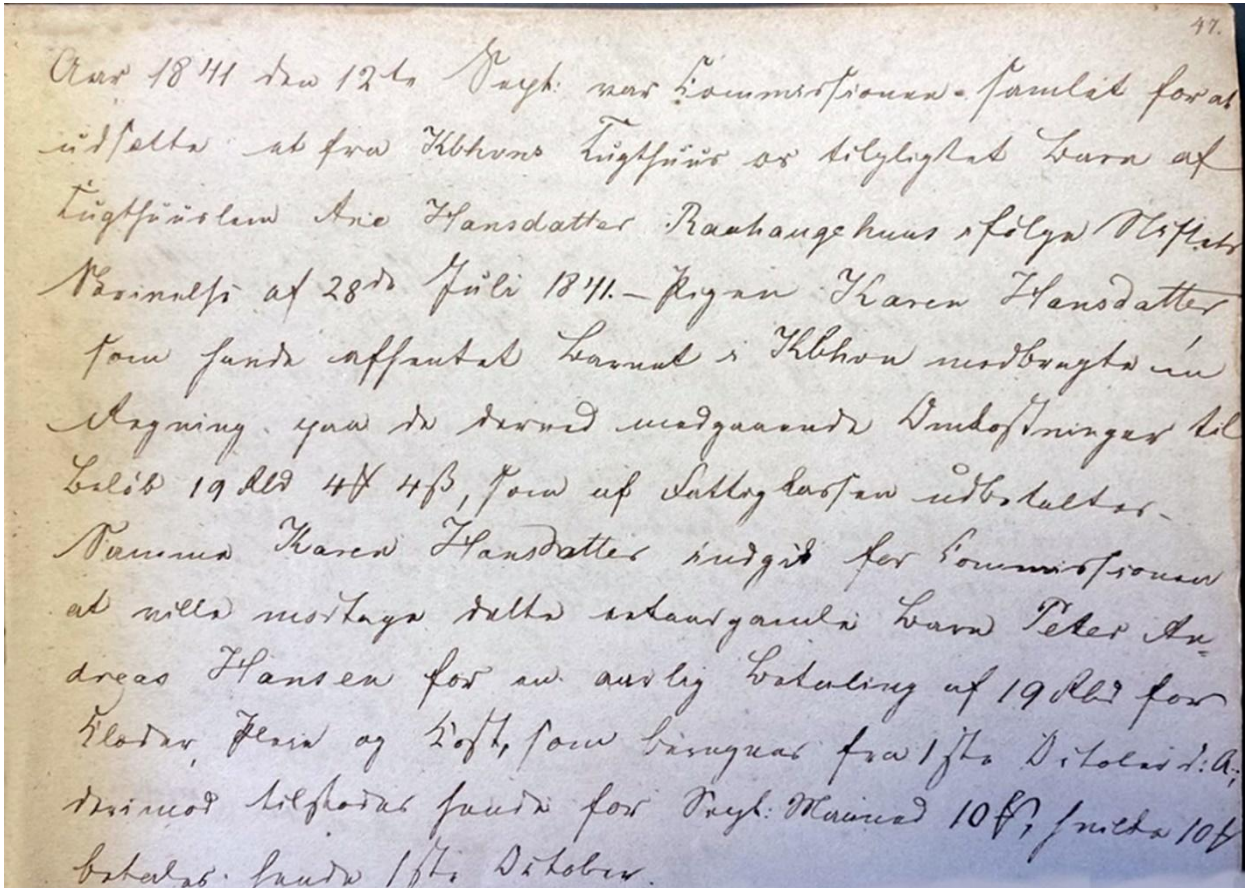 47.
Aar 1841 den 12te Sept: var Commissionen samlet for at
udsætte et fra Kbhvns Tugthuus os tilpligtet Barn af
Tugthuuslem Ane Hansdatter Raahaugehuus ifølge Stiftets
Skrivelse af 28de Juli 1841. – Pigen Karen Hansdatter
som havde afhentet Barnet i Kbhvn medbragte en
Regning paa de derved medgaaende Omkostninger til
Beløb 19 Rbd 4 ß, som af Fattigkassen udbetaltes.
Samme Karen Hansdatter indgik for Commissionen
at ville modtage dette etaargamle Barn Peter An=
dreas Hansen for en aarlig Betaling af 19 Rbd for
Klæder, Pleie og Kost, som beregnes fra 1ste October d: A:,
derimod tilstodes hende for Sept: Maaned 10 hvilke 10
betales hende 1ste October.